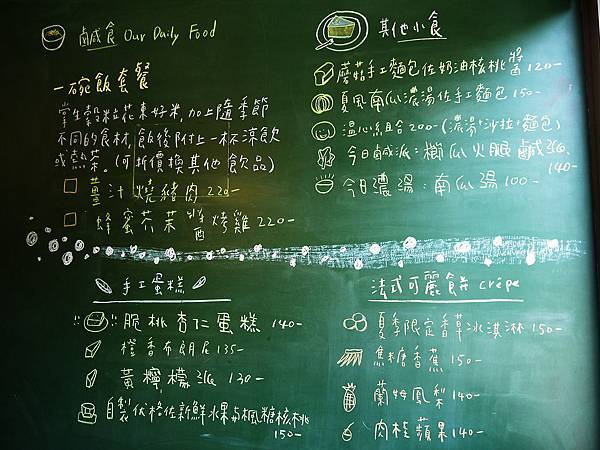 鹹食 Our Daily Food
一碗飯套餐
掌生穀粒花東好米,加上隨季節
不同的食材,飯後附上一杯涼飲
或熱茶。(可折價換其他飲品)
薑汁燒豬肉 220-
蜂蜜芥茉醬烤雞 220-
其他小食
蘑菇手工麵包佐奶油核桃醬 120-
夏風南瓜濃湯佐手工麵包 150-
溫心組合 200-(濃湯+沙拉+麵包)
今日鹹派:櫛瓜火腿鹹派
140-
今日濃湯:南瓜湯 100-
手工蛋糕
脆桃杏仁蛋糕 140-
橙香布朗尼 135-
黃檸檬派 130-
自製優格佐新鮮水果與楓糖核桃
150-
法式可麗餅 crêpe
夏季限定香草冰淇淋 150-
焦糖香蕉 150-
蘭姆鳳梨 140-
肉桂蘋果 140-